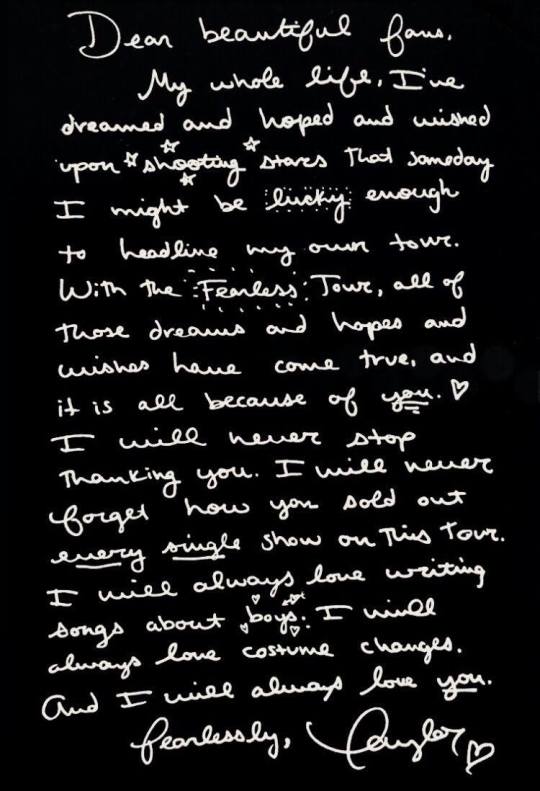 Dear beautiful fans,
My whole life, I've
dreamed and hoped and wished
upon shooting stars that someday
I might be lucky enough
to headline my own tour.
With the Fearless Tour, all of
those dreams and hopes and
wishes have come true, and
it is all because of you. ♡
I will never stop
thanking you. I will never
forget how you sold out
every single show on this tour.
I will always love writing
songs about boys. I will
always love costume changes.
And I will always love you.
fearlessly, Taylor ♡